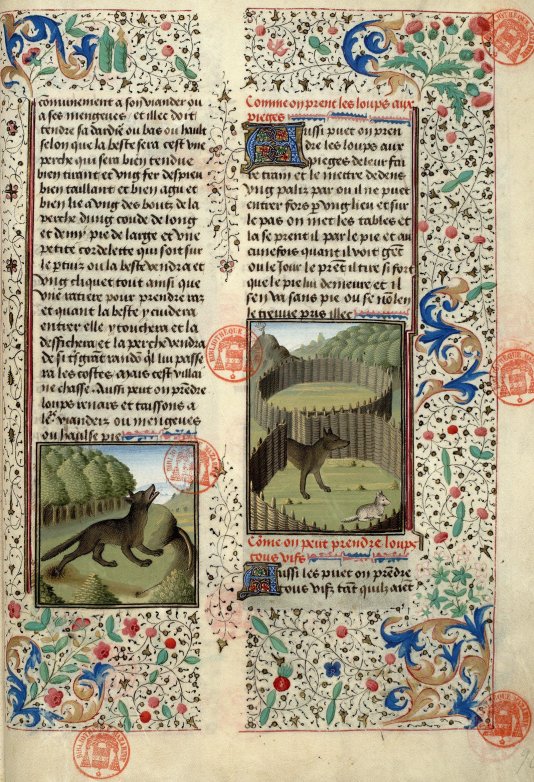 cōmunement a son viander ou
a ses mengeues et illec doit
tendre sa dardie ou bas ou hault
selon que la beste sera cest vne
perche qui sera bien tendue
bien tirant et vng fer despieu
bien taillant et bien agu et
bien lie a vng des boutz de la
perche dung coude de long
et demy pie de large et vne
petite cordelette qui soit sur
le ptuiz ou la beste vendra et
vng cliquet tout ainsi que
vne ratiere pour prendre raz
et quant la beste y cuidera
entrer elle y touchera et la
desfichera et la perche vendra
de si tsgrāt randō ql lui passe
ra les costes mais cest villai
ne chasse. Aussi peut on prēdre
loups renars et taissons a
leʳ viander ou mengeues
ou hausse pie
Comme on prent les loups aux
pieges
Aussi puet on pren
dre les loups aux
pieges de leur fai
le train et le mettre dedens
vng paliz par ou il ne puet
entrer fors p vng lieu et sur
le pas on met les tables et
la se prent il par le pie et au
cunefois quant il vont
ou le Jour le prēt il tire si fort
que le pie lui demeure et il
sen va sans pie ou se nōlen
le treuue pris illec
Cōme on peut prendre loups
tous vifs
Aussi les puet on prēdre
tous vifz tāt quilz aiet
BIBLIOTHÈQUE MAZARINE